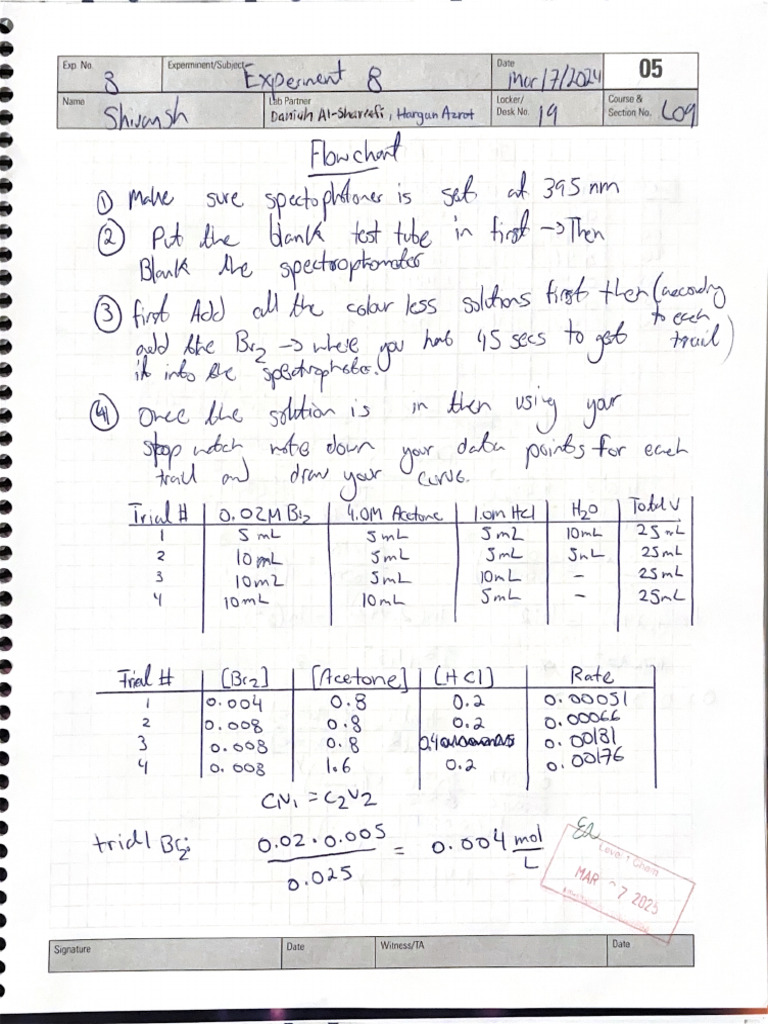 Exp. No. 8 Experiment/Subject Experiment 8 Date Mar/7/2024 05
Name Shivansh Lab Partner Daniah Al-Shareefi, Hargun Azrot Locker/ Desk No. 19 Course & Section No. L09
Flowchart
① Make sure spectophotoner is set at 395 nm
② Put the blank test tube in first → Then
Blank the spectrophometer
③ first Add all the colour less solutions first then (according
add the Br2 → where you has 45 secs to get to each
it into the trail)
④ Once the solution is in then using your
stop watch note down your data points for each
trail and draw your curve.
Trial # 0.02M Br2 4.0M Acetone 1.0M HCl H2O Total V
1 5 mL 5mL 5mL 10mL 25mL
2 10mL 5mL 5mL 5mL 25mL
3 10mL 5mL 10mL - 25mL
4 10mL 10mL 5mL - 25mL
Trial # [Br2] [Acetone] [HCl] Rate
1 0.004 0.8 0.2 0.00051
2 0.008 0.8 0.2 0.00066
3 0.008 0.8 0.4 0.00131
4 0.008 1.6 0.2 0.00176
CV1 = C2V2
trial 1 Br2: 0.02 · 0.005 = 0.004 mol
0.025 L
Level 1 Chem
MAR 7 2025
Signature Date Witness/TA Date